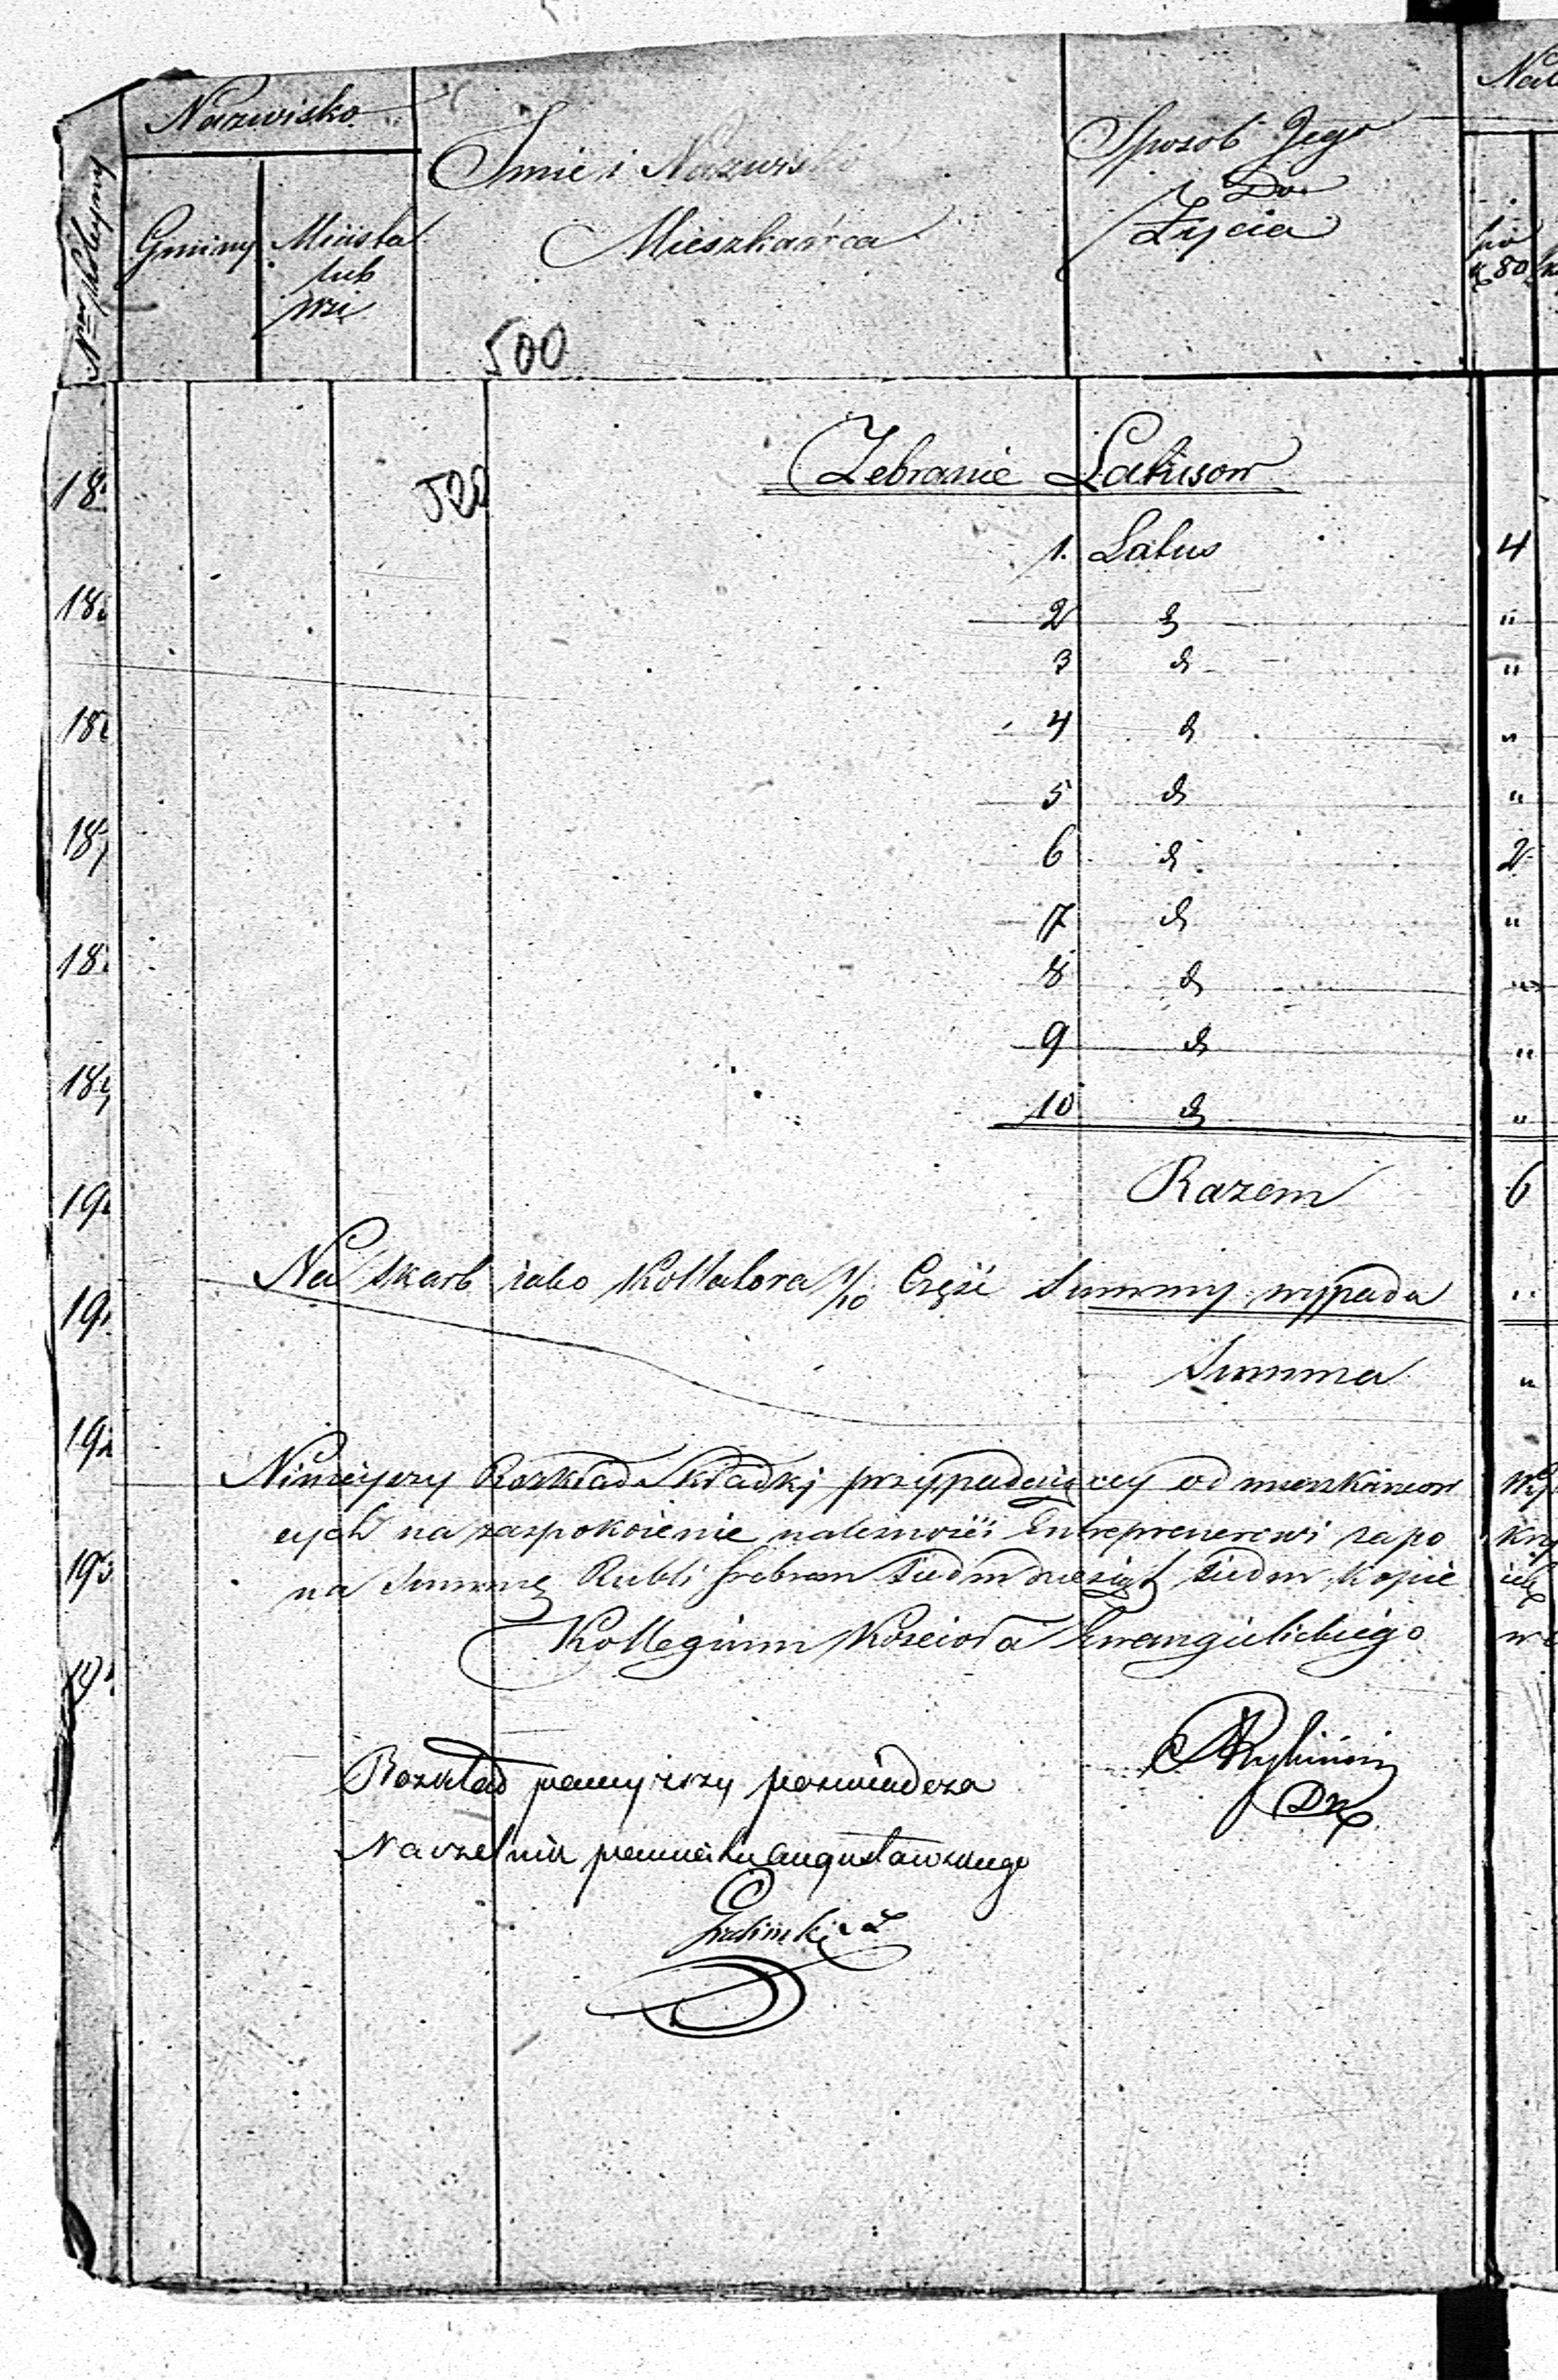 Nazwisko
Gminy
Miasta
lub
wsi
Imie i Nazwisko
Mieszkańca
Sposob Jego
Do
Życia
500
520
Zebranie Latusow
1. Latus 4
2 d "
3 d "
4 d "
5 d "
6 d 2
7 d "
8 d "
9 d "
10 d "
Razem 6
Na skarb iako Kollatora 1/10 Część Summy wypada "
Summa "
Ninieyszy Rozkład Składki przypadaiącey od
cych na zaspokoienie należności Entreprenerowi za po
na Summę Rubli srebrem siedmdziesiąt siedm kopie
Kollegium Kościoła Ewangielickiego
Rozkład powyższy poswiadcza
Naczelnik powiatu Augustowskiego